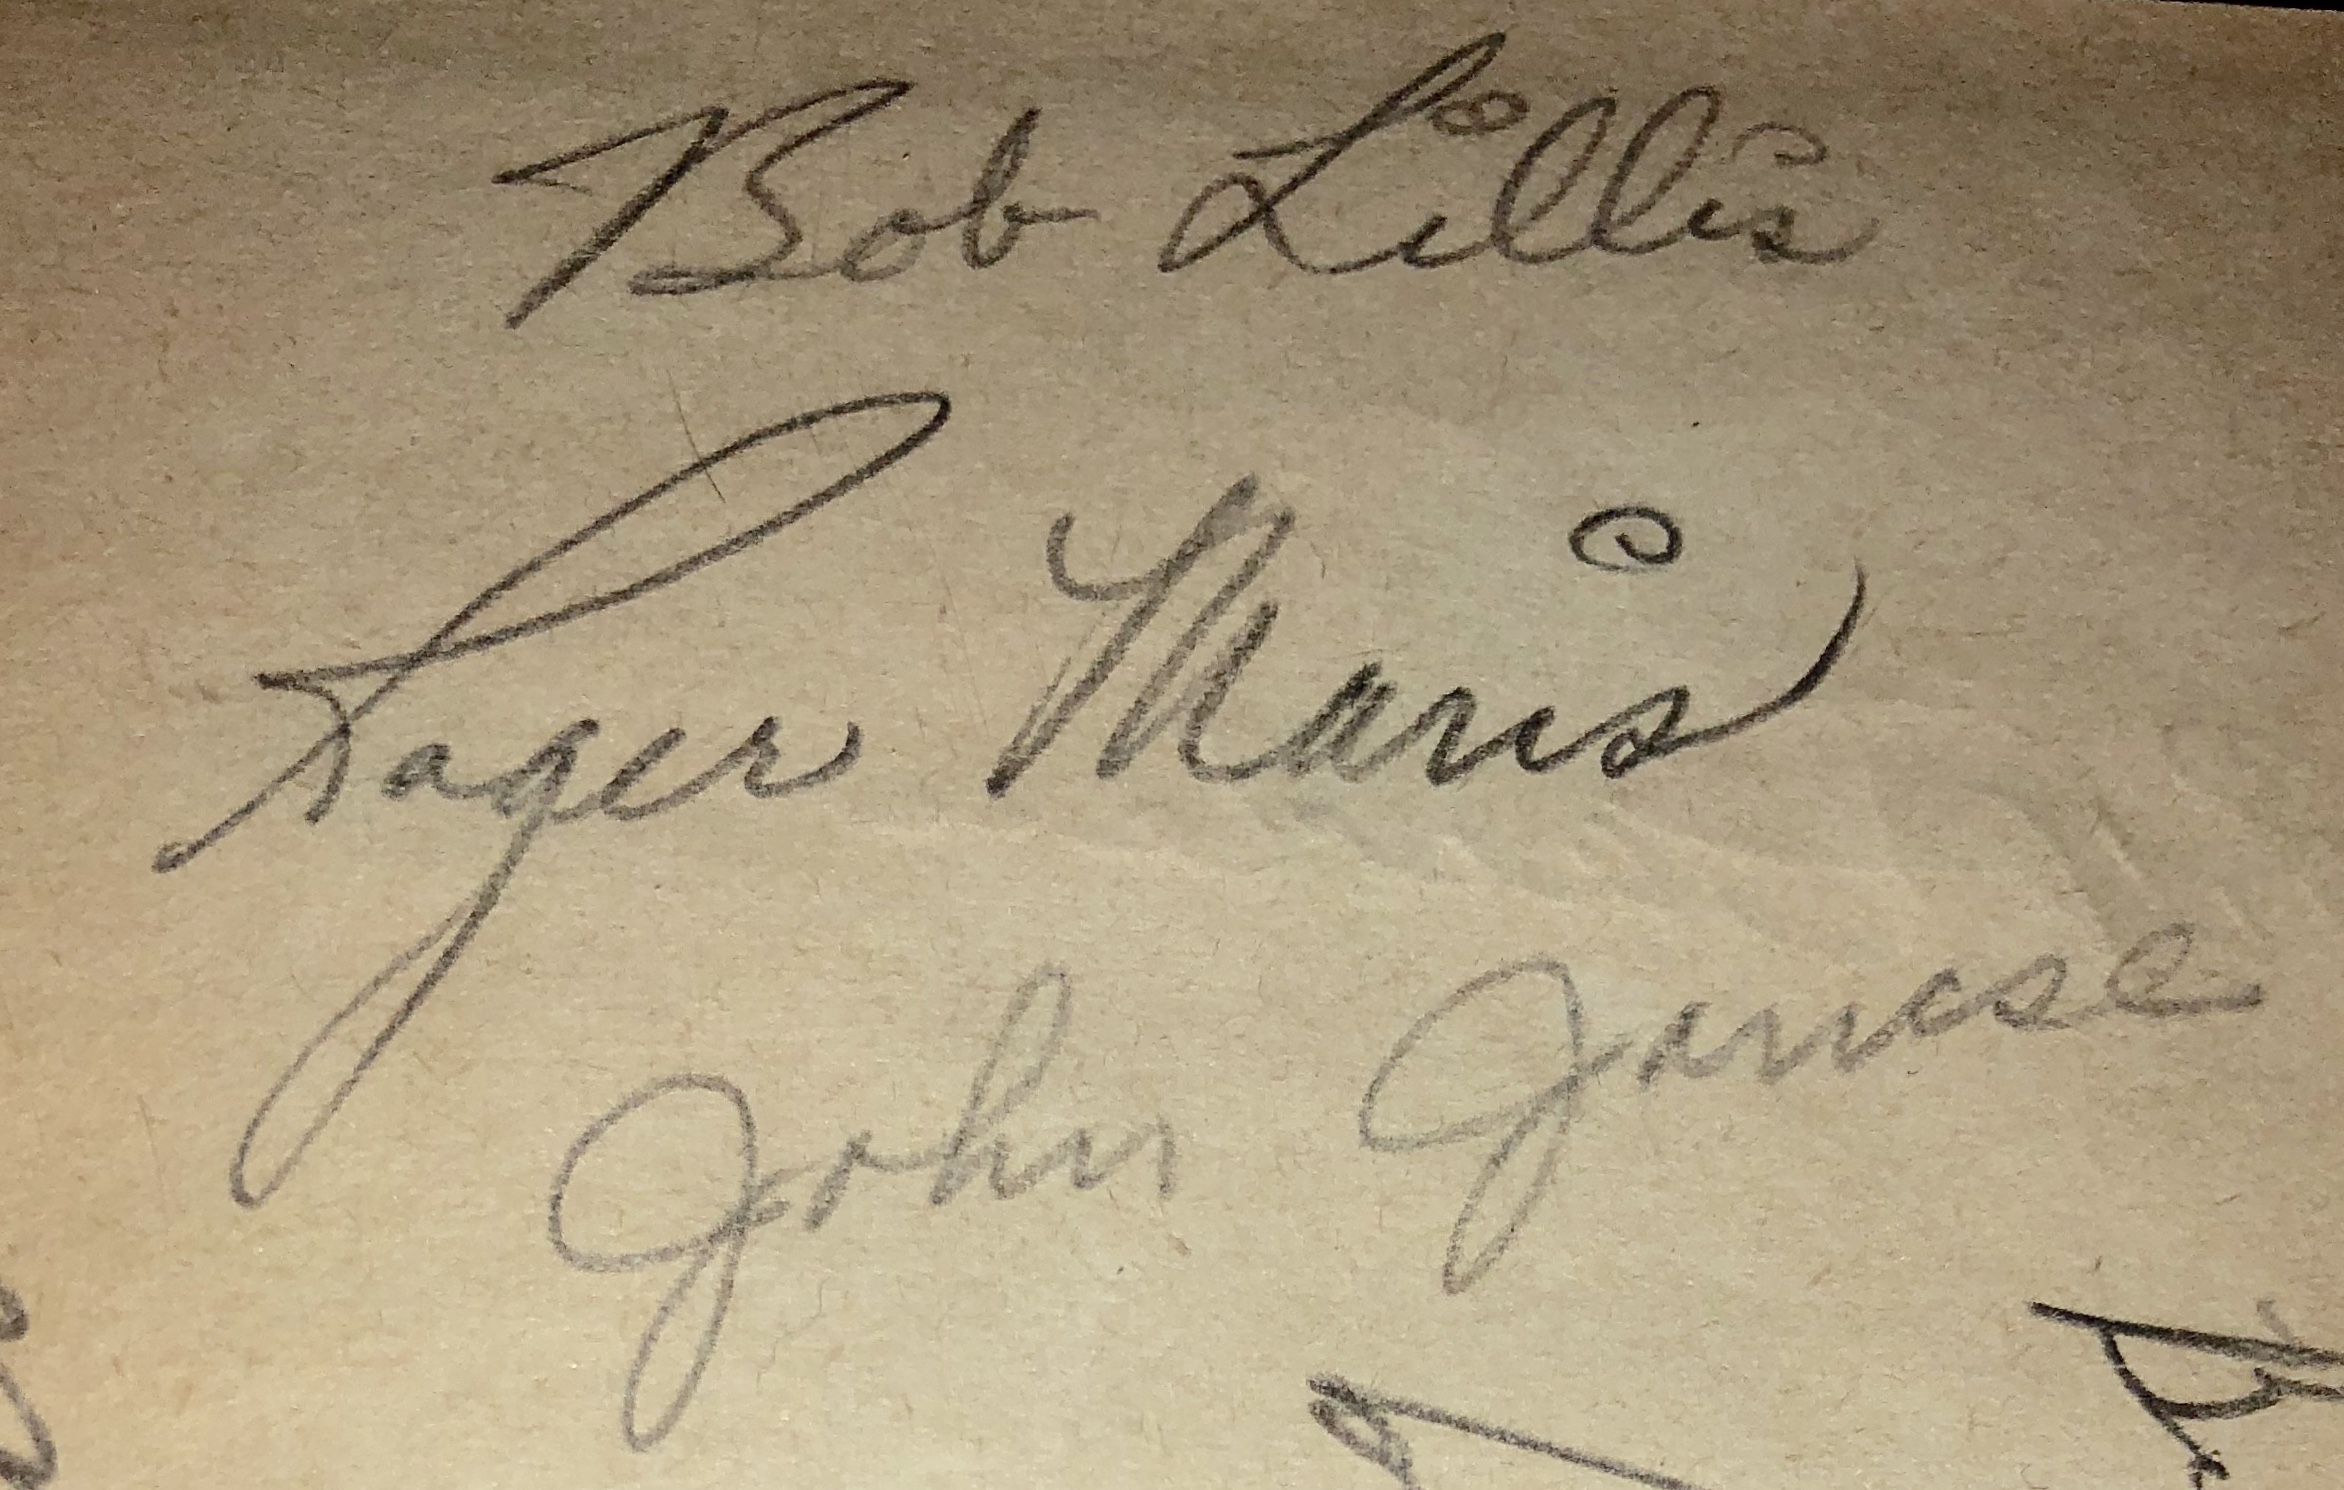 Bob Lillis
Roger Maris
John Janese